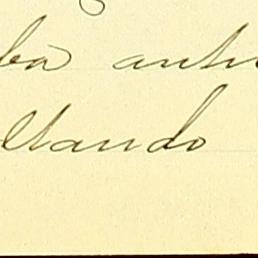 ba anti
llando